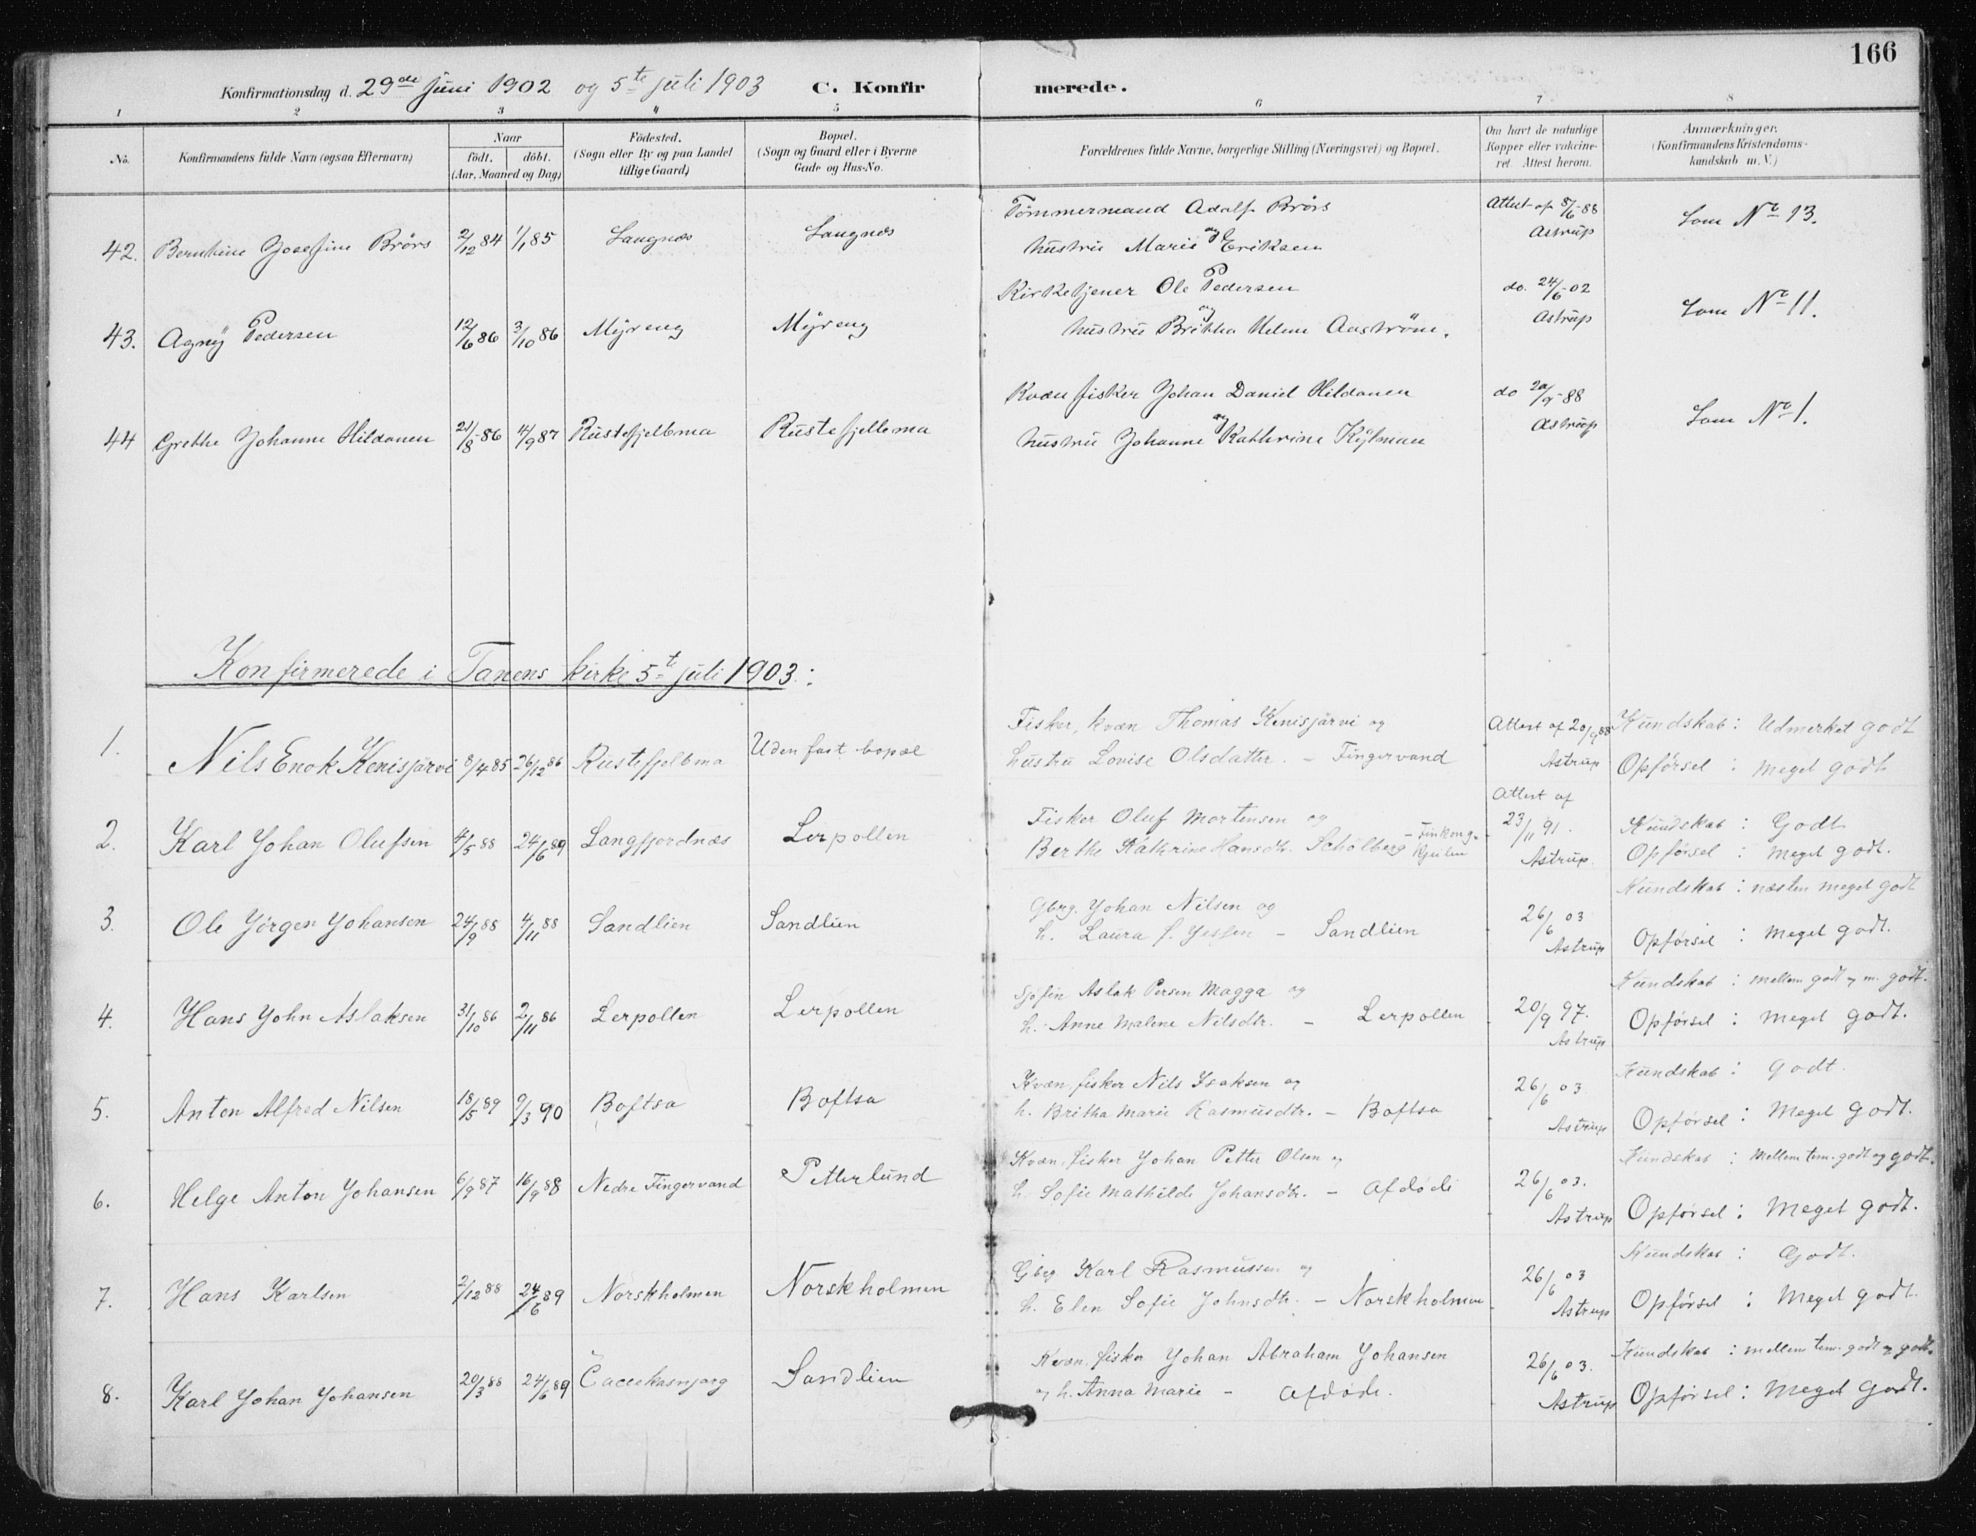 166
Konfirmationsdag d. 29de Juni 1902 og 5te juli 1903 C. Konfirmerede.
1 2 3 4 5 6 7 8
No. Konfirmandens fulde Navn (ogsaa Efternavn) Naar født. døbt. (Aar, Maaned og Dag) Fødested. (Sogn eller By og paa Landet tillige Gaard) Bopæl. (Sogn og Gaard eller i Byerne Gade og Hus-No. Forældrenes fulde Navne, borgerlige Stilling (Næringsvei) og Bopæl. Om havt de naturlige Kopper eller vaccineret Attest herom. Anmærkninger. (Konfirmandens Kristendomskundskab m. V.)
42. Bernhine Josefine Brörs 2/12 84 1/1 85 Langnæs Langnæs Tømmermand Adolf Brörs og hustru Marie Eriksen Attest af 8/6-88 Astrup Som No 13.
43. Agny Pedersen 12/6 86 3/10 86 Myreng Myreng Kirketjener Ole Pedersen og hustru Britha Helene Aastrøm. do. 24/6-02 Astrup Som No 11.
44 Grethe Johanne Hildonen 21/8-86 4/9 87 Rustefjelbma Rustefjelbma Kvæn fisker Johan Daniel Hildonen og hustru Johanne Kathrine Kylman do 20/9-88 Astrup Som No 1.
Konfirmerede i Tanens kirke 5te juli 1903:
1. Nils Enok Kenisjärvi 8/4 85 26/12 86 Rustefjelbma Uden fast bopæl Fisker, kvæn Thomas Kenisjärvi og hustru Lovise Olsdatter. – Fingervand Attest af 20/9 88 Astrup Kundskab: Udmerket godt Opførsel: Meget godt
2. Karl Johan Olufsen 4/5 88 24/6 89 Langfjordnæs Lerpollen Fisker Oluf Mortensen og Berthe Kathrine Hansdtr. Schølberg – Finkongkjeilen Attest af 23/11 91. Astrup. Kundskab: Godt Opførsel: Meget godt.
3. Ole Jørgen Johansen 24/9 88 4/11 88 Sandlien Sandlien Gbrg. Johan Nilsen og h. Laura f. Jessen – Sandlien 26/6 03 Astrup Kundskab: næsten meget godt Opførsel: Meget godt.
4. Hans John Aslaksen 31/10 86 2/11 86 Lerpollen Lerpollen Sjøfin Aslak Persen Magga og h. Anne Malene Nilsdtr. – Lerpollen 20/9 97. Astrup Kundskab: mellem godt og m. godt. Opførsel: Meget godt.
5. Anton Alfred Nilsen 18/5 89 9/3 90 Boftsa Boftsa Kvæn, fisker Nils Isaksen og h. Britha Marie Rasmusdtr. – Boftsa 26/6 03 Astrup Kundskab: Godt. Opførsel: Meget godt.
6. Helge Anton Johansen 6/9 87 16/9 88 Nedre Fingervand Petterlund Kvæn, fisker Johan Petter Olsen og h. Sofie Mathilde Johansdtr. – Afdøde 26/6 03. Astrup Kundskab: Mellem tem. godt og godt. Opførsel: Meget godt.
7. Hans Karlsen 2/12 88 24/6 89 Norskholmen Norskholmen Gbrg Karl Rasmussen og h. Elen Sofie Johnsdtr. – Norskholmen 26/6 03 Astrup Kundskab: Godt. Opførsel: Meget godt.
8. Karl Johan Johansen 20/3 88 24/6 89 Sandlien Kvæn, fisker Johan Abraham Johansen og h. Anna Marie – Afdøde. 26/6 03. Astrup Kundskab: mellem tem. godt og godt. Opførsel: Meget Godt.